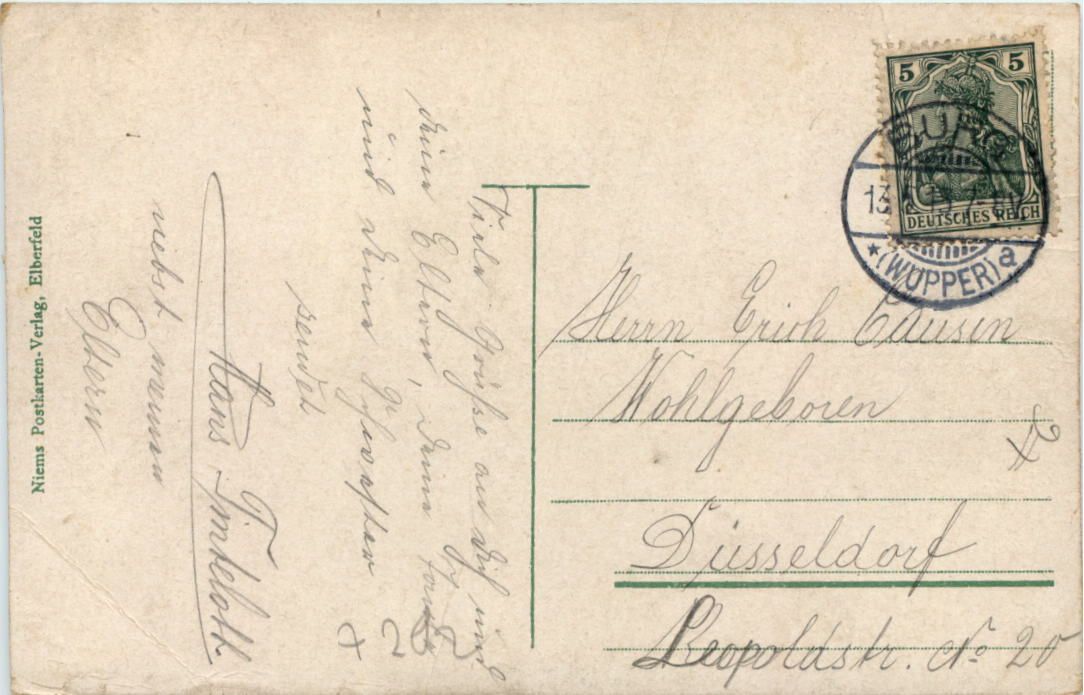 Viele Grüße an dich und
deine Eltern, deine
und deine Geschwister
sendet
Hans
nebst meinen
Eltern
Niems Postkarten-Verlag, Elberfeld
5 5
DEUTSCHES REICH
BURG
13
* (WUPPER) a
Herrn Erich Clausen
Wohlgeboren
Düsseldorf
Leopoldstr. No 20